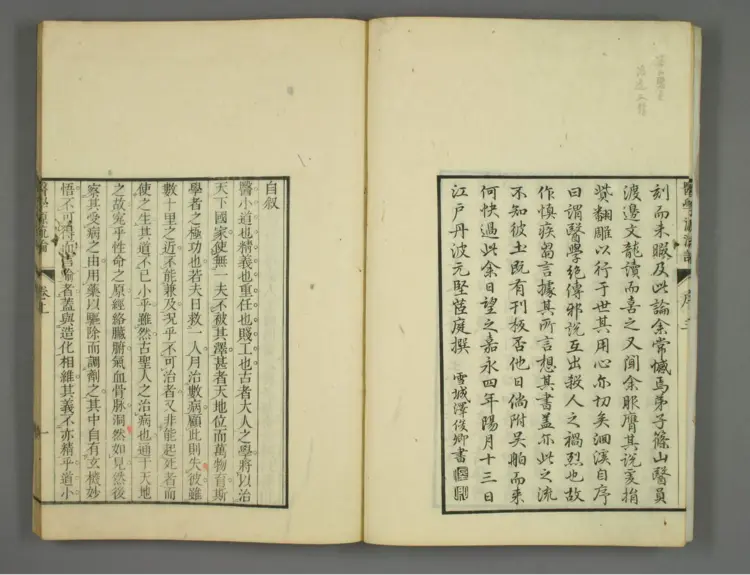 刻而未暇及此論余常憾焉弟子篠山醫員
渡邊文龍讀而喜之又聞余服膺其說爰捐
貲翻雕以行于世其用心亦切矣洄溪自序
曰謂醫學絕傳邪說互出殺人之禍烈也故
作慎疾芻言據其所言想其書蓋亦此之流
不知彼土既有刊板否他日倘附吴舶而來
何快過此余日望之嘉永四年陽月十三日
江戶丹波元堅茝庭撰
雪城澤俊卿書
自叙
醫小道也精義也重任也賤工也古者大人之學將以治
天下國家使無一夫不被其澤甚者天地位而萬物育斯
學者之極功也若夫日救一人月治數病顧此則失彼雖
數十里之近不能兼及况乎不可治者又非能起死者而
使之生其道不已小乎雖然古聖人之治病也通于天地
之故究乎性命之原經絡臟腑氣血骨脉洞然如見然後
察其受病之由用藥以驅除而調劑之其中自有玄機妙
悟不可得而言喻者蓋與造化相維其義不亦精乎道小
醫學源流論